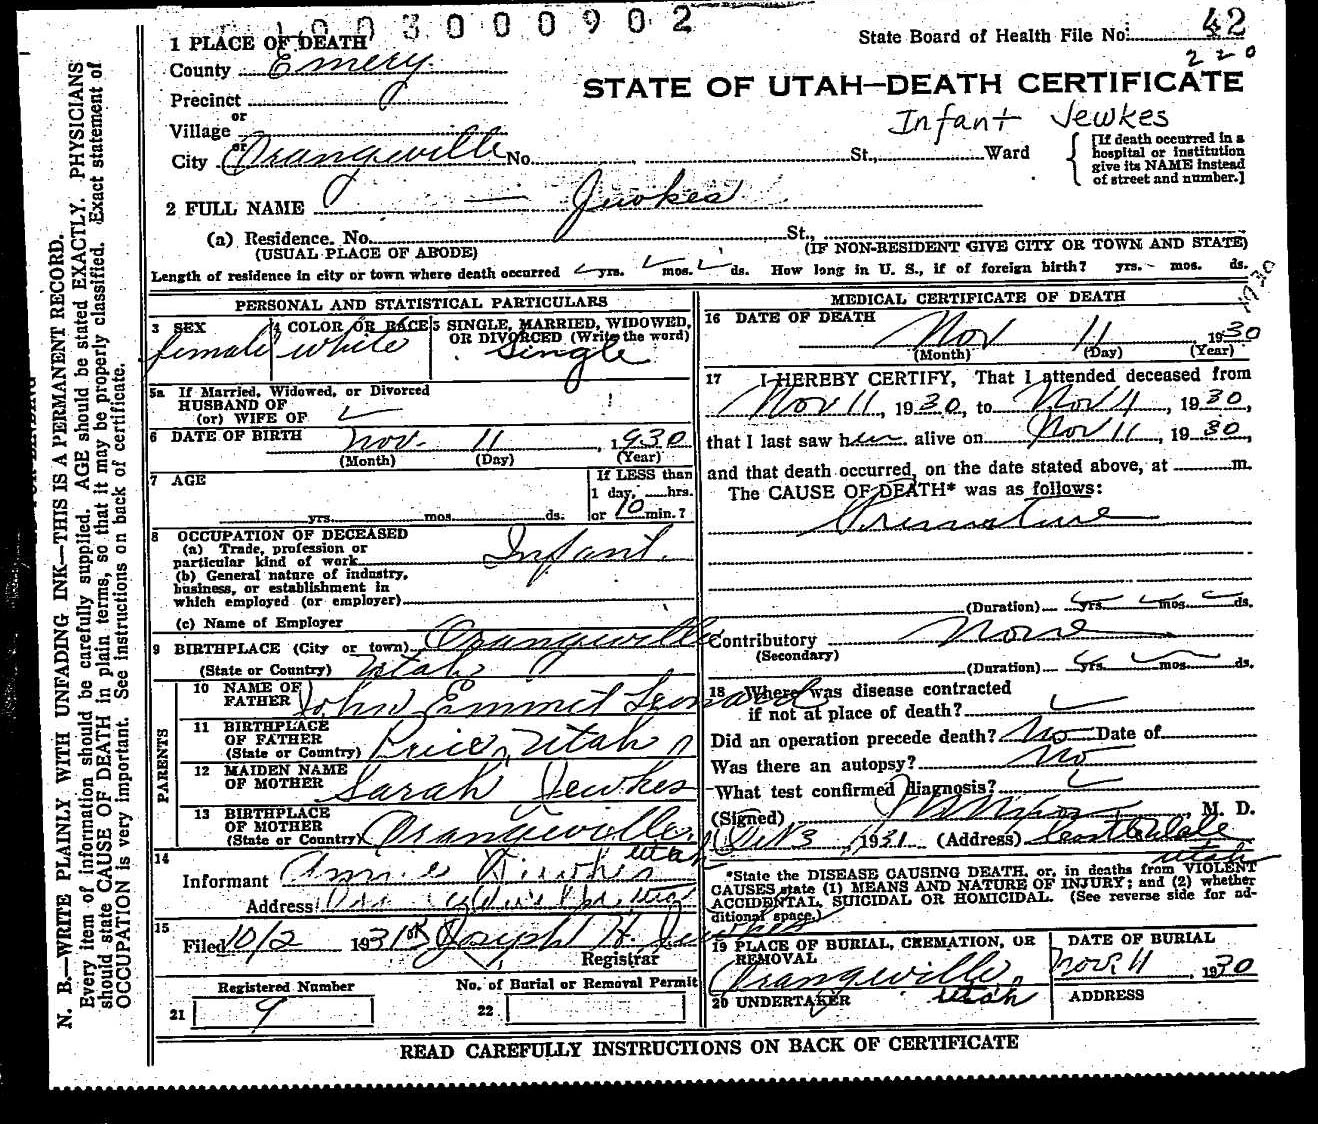 1003000902
State Board of Health File No. 42
220
1 PLACE OF DEATH
County Emery
STATE OF UTAH—DEATH CERTIFICATE
Precinct
or
Village
Infant Jewkes
or
City Orangeville No. St., Ward
[If death occurred in a hospital or institution give its NAME instead of street and number.]
2 FULL NAME — Jewkes
(a) Residence. No. St.,
(USUAL PLACE OF ABODE) (IF NON-RESIDENT GIVE CITY OR TOWN AND STATE)
Length of residence in city or town where death occurred yrs. mos. ds. How long in U. S., if of foreign birth? yrs. mos. ds.
1930
PERSONAL AND STATISTICAL PARTICULARS
3 SEX
female
4 COLOR OR RACE
white
5 SINGLE, MARRIED, WIDOWED,
OR DIVORCED (Write the word)
Single
5a If Married, Widowed, or Divorced
HUSBAND OF
(or) WIFE OF
6 DATE OF BIRTH Nov. 11, 1930
(Month) (Day) (Year)
7 AGE
yrs. mos. ds.
If LESS than
1 day, hrs.
or 10 min.?
8 OCCUPATION OF DECEASED
(a) Trade, profession or
particular kind of work Infant.
(b) General nature of industry,
business, or establishment in
which employed (or employer)
(c) Name of Employer
9 BIRTHPLACE (City or town) Orangeville
(State or Country) Utah
PARENTS
10 NAME OF
FATHER John Emmit Leonard
11 BIRTHPLACE
OF FATHER
(State or Country) Price, Utah
12 MAIDEN NAME
OF MOTHER Sarah Jewkes
13 BIRTHPLACE
OF MOTHER
(State or Country) Orangeville
Utah
14
Informant Annie
Address
15
Filed 10/2 1931 Joseph H. Jewkes
Registrar
Registered Number
21 9
No. of Burial or Removal Permit
22
MEDICAL CERTIFICATE OF DEATH
16 DATE OF DEATH
Nov 11 1930
(Month) (Day) (Year)
17 I HEREBY CERTIFY, That I attended deceased from
Nov 11, 1930, to Nov 11, 1930,
that I last saw her alive on Nov 11, 1930,
and that death occurred, on the date stated above, at m.
The CAUSE OF DEATH* was as follows:
Premature
(Duration) yrs. mos. ds.
Contributory None
(Secondary)
(Duration) yrs. mos. ds.
18 Where was disease contracted
if not at place of death?
Did an operation precede death? No Date of
Was there an autopsy? No
What test confirmed diagnosis?
(Signed) M. D.
1931 (Address) Castle Dale
Utah
*State the DISEASE CAUSING DEATH, or, in deaths from VIOLENT
CAUSES, state (1) MEANS AND NATURE OF INJURY; and (2) whether
ACCIDENTAL, SUICIDAL OR HOMICIDAL. (See reverse side for ad-
ditional space.)
19 PLACE OF BURIAL, CREMATION, OR
REMOVAL
Orangeville,
Utah
DATE OF BURIAL
Nov 11, 1930
20 UNDERTAKER
ADDRESS
READ CAREFULLY INSTRUCTIONS ON BACK OF CERTIFICATE
N. B.—WRITE PLAINLY WITH UNFADING INK—THIS IS A PERMANENT RECORD.
Every item of information should be carefully supplied. AGE should be stated EXACTLY. PHYSICIANS
should state CAUSE OF DEATH in plain terms, so that it may be properly classified. Exact statement of
OCCUPATION is very important. See instructions on back of certificate.